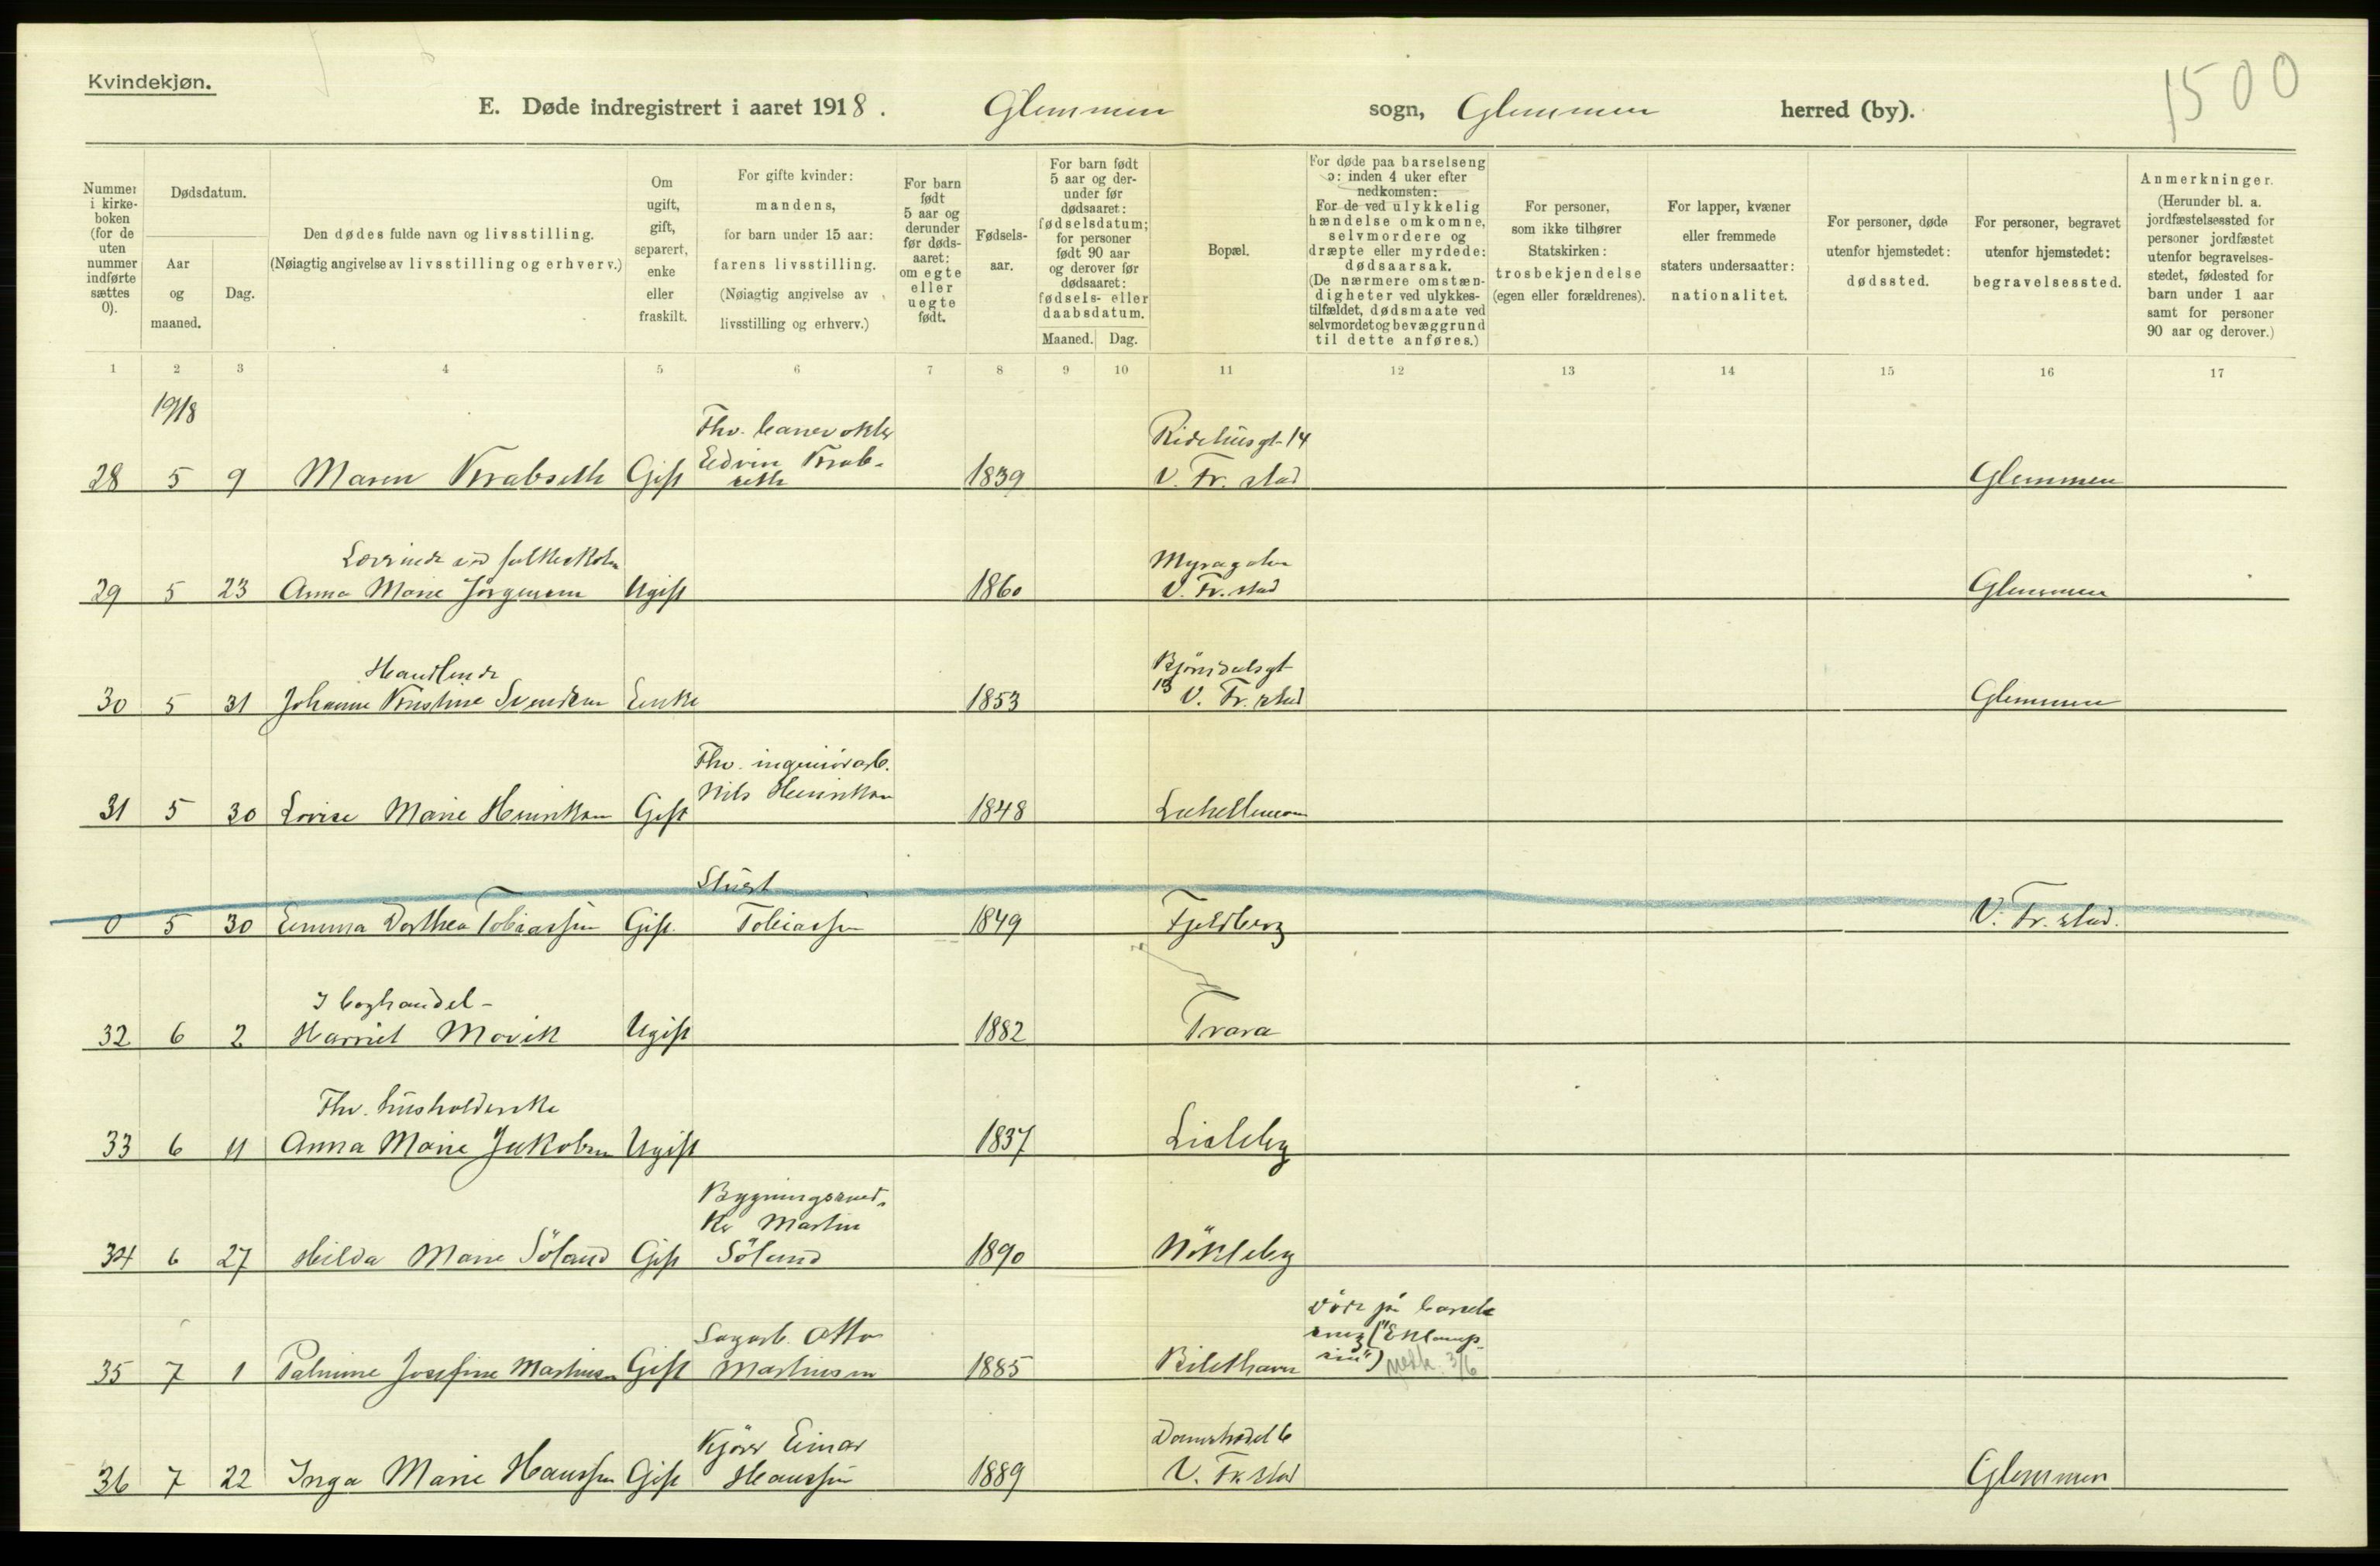 Kvindekjøn.
1500
E. Døde indregistrert i aaret 1918. Glemmen sogn, Glemmen herred (by).
Nummer i kirkeboken (for de uten nummer indførte sættes 0).
Dødsdatum.
Aar og maaned.
Dag.
Den dødes fulde navn og livsstilling.
(Nøiagtig angivelse av livsstilling og erhverv.)
Om ugift, gift, separert, enke eller fraskilt.
For gifte kvinder: mandens, for barn under 15 aar: farens livsstilling. (Nøiagtig angivelse av livsstilling og erhverv.)
For barn født 5 aar og derunder før dødsaaret: om egte eller uegte født.
Fødselsaar.
For barn født 5 aar og derunder før dødsaaret: fødselsdatum; for personer født 90 aar og derover før dødsaaret: fødsels- eller daabsdatum.
Maaned. Dag.
Bopæl.
For døde paa barselseng ɔ: inden 4 uker efter nedkomsten:
For de ved ulykkelig hændelse omkomne, selvmordere og dræpte eller myrdede: dødsaarsak.
(De nærmere omstændigheter ved ulykkestilfældet, dødsmaate ved selvmordet og bevæggrund til dette anføres.)
For personer, som ikke tilhører Statskirken: trosbekjendelse (egen eller forældrenes).
For lapper, kvæner eller fremmede staters undersaatter: nationalitet.
For personer, døde utenfor hjemstedet: dødssted.
For personer, begravet utenfor hjemstedet: begravelsessted.
Anmerkninger.
(Herunder bl. a. jordfæstelsessted for personer jordfæstet utenfor begravelsesstedet, fødested for barn under 1 aar samt for personer 90 aar og derover.)
1 2 3 4 5 6 7 8 9 10 11 12 13 14 15 16 17
1918
Fhv. banevokter Ridehusgt. 14
28 5 9 Maren Krabseth Gift Edvin Krabseth 1839 V. Fr. stad Glemmen
Lærerinde ved folkeskolen
29 5 23 Anna Marie Jørgensen Ugift 1860 V. Fr. stad Glemmen
Handlende Bjørndalsgt
30 5 31 Johanne Kristine Svendsen Enke 1853 13 V. Fr. stad Glemmen
Fhv. ingeniørarb.
31 5 30 Lovise Marie Henriksen Gift Nils Henriksen 1848
0 5 30 Emma Dorthea Tobiassen Gift Tobiassen 1849 Fjeldberg V. Fr. stad.
I boghandel -
32 6 2 Harriet Movik Ugift 1882 Trara
Fhv. husholderske
33 6 11 Anna Marie Jakobsen Ugift 1837 Lisleby
Bygningssned-
34 6 27 Hilda Marie Söland Gift ker Martin Söland 1890 Nökleby
Död på barselseng ("Eklampsia") nedk. 3/6
35 7 1 Palmine Josefine Martinsen Gift Sagarb. Otto Martinsen 1885
Kjører Einar
36 7 22 Inga Marie Hanssen Gift Hanssen 1889 V. Fr. stad Glemmen